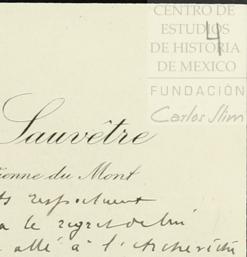 CENTRO DE
ESTUDIOS
DE HISTORIA
DE MEXICO
FUNDACIÓN
Carlos Slim
4
Sauvêtre
ienne du Mont
ts respectueux
a le regret de lui
allé à l'Archevêché